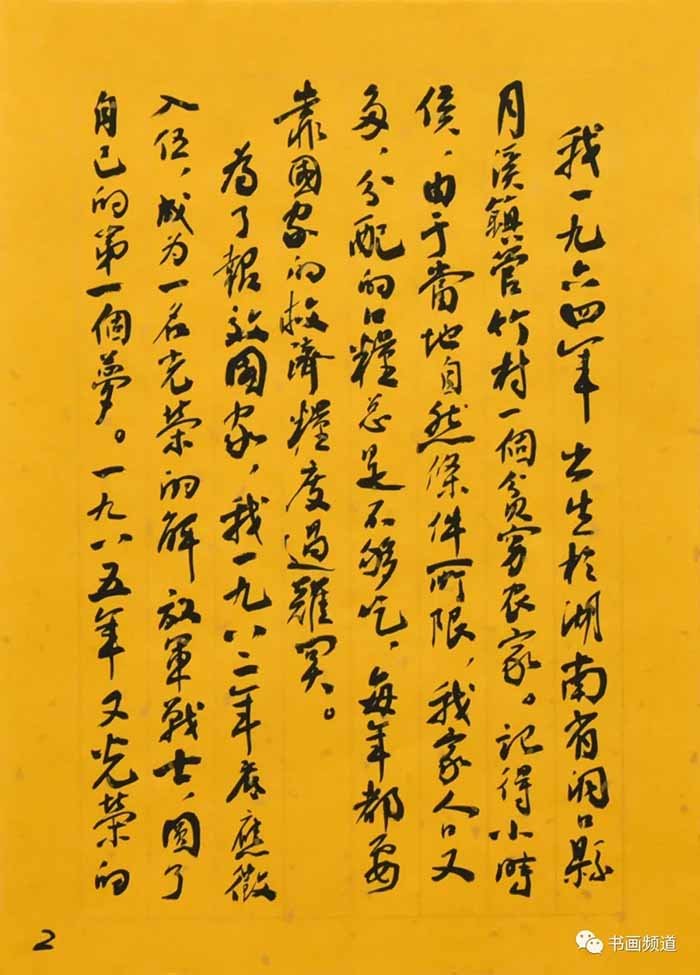 我一九六四年出生於湖南省洞口縣
月溪鎮管竹村一個貧穷农家。記得小時
候，由于當地自然條件所限，我家人口又
多，分配的口糧总是不够吃，每年都要
靠國家的救濟糧度過難関。
為了報效國家，我一九八二年底應徵
入伍，成为一名光荣的解放軍戰士，圓了
自己的第一個夢。一九八五年又光荣的
2
书画频道